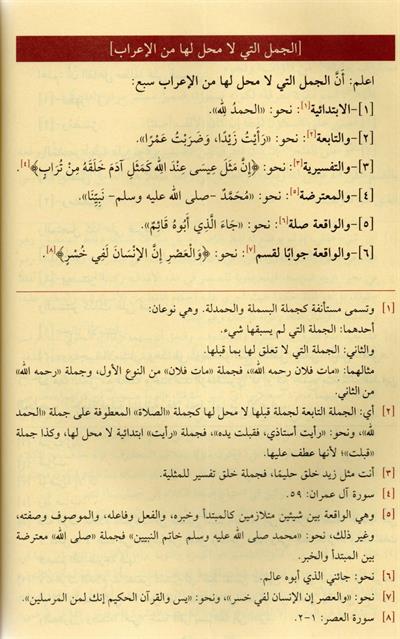 [الجمل التي لا محل لها من الإعراب]
اعلم: أَنَّ الجمل التي لا محل لها من الإعراب سبع:
[١]-الابتدائية[١]: نحو: «الحمدُ لله».
[٢]-والتابعة[٢]: نحو: «رَأَيْتُ زَيْدًا، وَضَرَبْتُ عَمْرًا».
[٣]-والتفسيرية[٣]: نحو: ﴿إِنَّ مَثَلَ عِيسَى عِنْدَ اللهِ كَمَثَلِ آدَمَ خَلَقَهُ مِنْ تُرَابٍ﴾[٤].
[٤]-والمعترضة[٥]: نحو: «مُحَمَّدٌ -صلى الله عليه وسلم- نَبِيُّنَا».
[٥]-والواقعة صلة[٦]: نحو: «جَاءَ الَّذِي أَبُوهُ قَائِمٌ».
[٦]-والواقعة جوابًا لقسم[٧]: نحو: ﴿وَالْعَصْرِ إِنَّ الإِنْسَانَ لَفِي خُسْرٍ﴾[٨].
[١] وتسمى مستأنفة كجملة البسملة والحمدلة. وهي نوعان:
أحدهما: الجملة التي لم يسبقها شيء.
والثاني: الجملة التي لا تعلق لها بما قبلها.
مثالهما: «مات فلان رحمه الله»، فجملة «مات فلان» من النوع الأول، وجملة «رحمه الله»
من الثاني.
[٢] أي: الجملة التابعة لجملة قبلها لا محل لها كجملة «الصلاة» المعطوفة على جملة «الحمد
لله»، ونحو: «رأيت أستاذي، فقبلت يده»، فجملة «رأيت» ابتدائية لا محل لها، وكذا جملة
«قبلت»؛ لأنها عطف عليها.
[٣] أنت مثل زيد خلق حليمًا، فجملة خلق تفسير للمثلية.
[٤] سورة آل عمران: ٥٩.
[٥] وهي الواقعة بين شيئين متلازمين كالمبتدأ وخبره، والفعل وفاعله، والموصوف وصفته،
وغير ذلك، نحو: «محمد صلى الله عليه وسلم خاتم النبيين» فجملة «صلى الله» معترضة
بين المبتدأ والخبر.
[٦] نحو: جائني الذي أبوه عالم.
[٧] نحو: «والعصر إن الإنسان لفي خسر»، ونحو: «يس والقرآن الحكيم إنك لمن المرسلين».
[٨] سورة العصر: ١-٢.